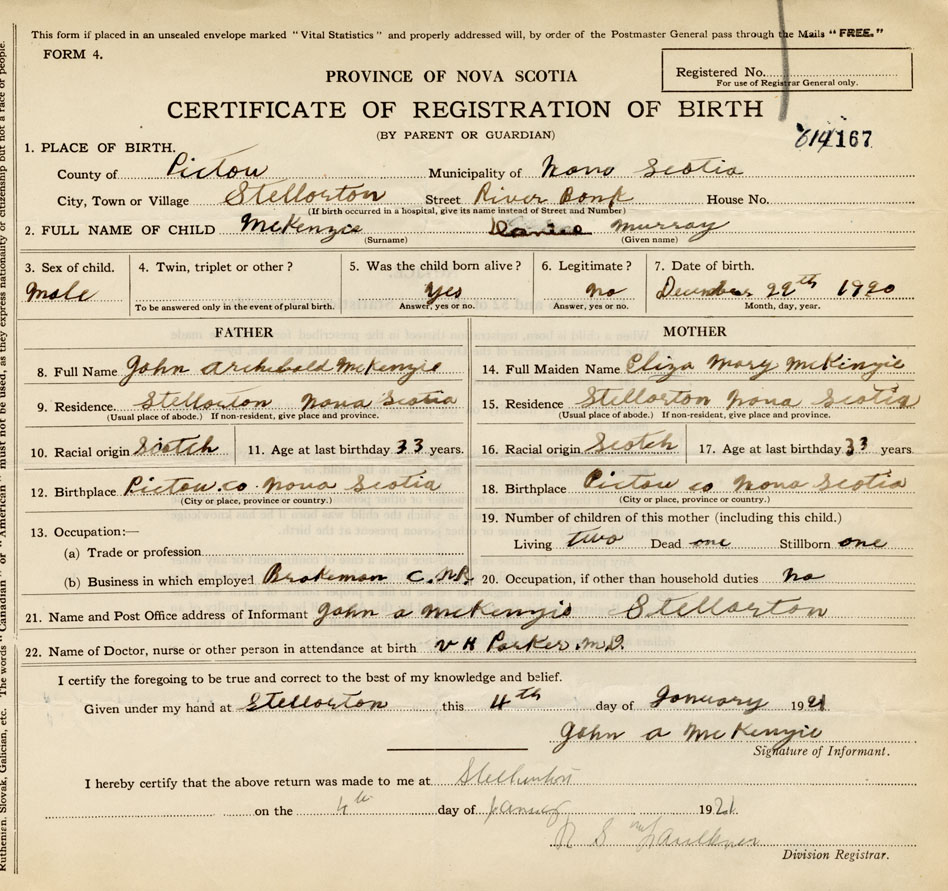 This form if placed in an unsealed envelope marked "Vital Statistics" and properly addressed will, by order of the Postmaster General pass through the Mails "FREE."
FORM 4.
PROVINCE OF NOVA SCOTIA
Registered No.
For use of Registrar General only.
CERTIFICATE OF REGISTRATION OF BIRTH
(BY PARENT OR GUARDIAN)
614167
1. PLACE OF BIRTH.
County of Pictou Municipality of Nova Scotia
City, Town or Village Stellorton Street River Bank House No.
(If birth occurred in a hospital, give its name instead of Street and Number)
2. FULL NAME OF CHILD McKenzie Murray
(Surname) (Given name)
3. Sex of child. Male
4. Twin, triplet or other?
To be answered only in the event of plural birth.
5. Was the child born alive? Yes
Answer, yes or no.
6. Legitimate? no
Answer, yes or no.
7. Date of birth. December 22th 1920
Month, day, year.
FATHER
8. Full Name John Archibald McKenzie
9. Residence. Stellorton Nova Scotia
(Usual place of abode.) If non-resident, give place and province.
10. Racial origin Scotch 11. Age at last birthday 33 years.
12. Birthplace Pictou co Nova Scotia
(City or place, province or country.)
13. Occupation:—
(a) Trade or profession
(b) Business in which employed Brakeman C.N.R.
MOTHER
14. Full Maiden Name Eliza Mary McKinzie
15. Residence Stellorton Nova Scotia
(Usual place of abode.) If non-resident, give place and province.
16. Racial origin Scotch 17. Age at last birthday 33 years.
18. Birthplace Pictou co Nova Scotia
(City or place, province or country.)
19. Number of children of this mother (including this child.)
Living two Dead one Stillborn one
20. Occupation, if other than household duties No
21. Name and Post Office address of Informant John a McKenzie Stellorton
22. Name of Doctor, nurse or other person in attendance at birth V H Parker M.D.
I certify the foregoing to be true and correct to the best of my knowledge and belief.
Given under my hand at Stellorton this 4th day of January 1921
John a McKenzie
Signature of Informant.
I hereby certify that the above return was made to me at
on the 4th day of January 1921.
Faulkner
Division Registrar.
Ruthenian, Slovak, Galician, etc. The words "Canadian" or "American" must not be used, as they express nationality or citizenship but not a race or people.